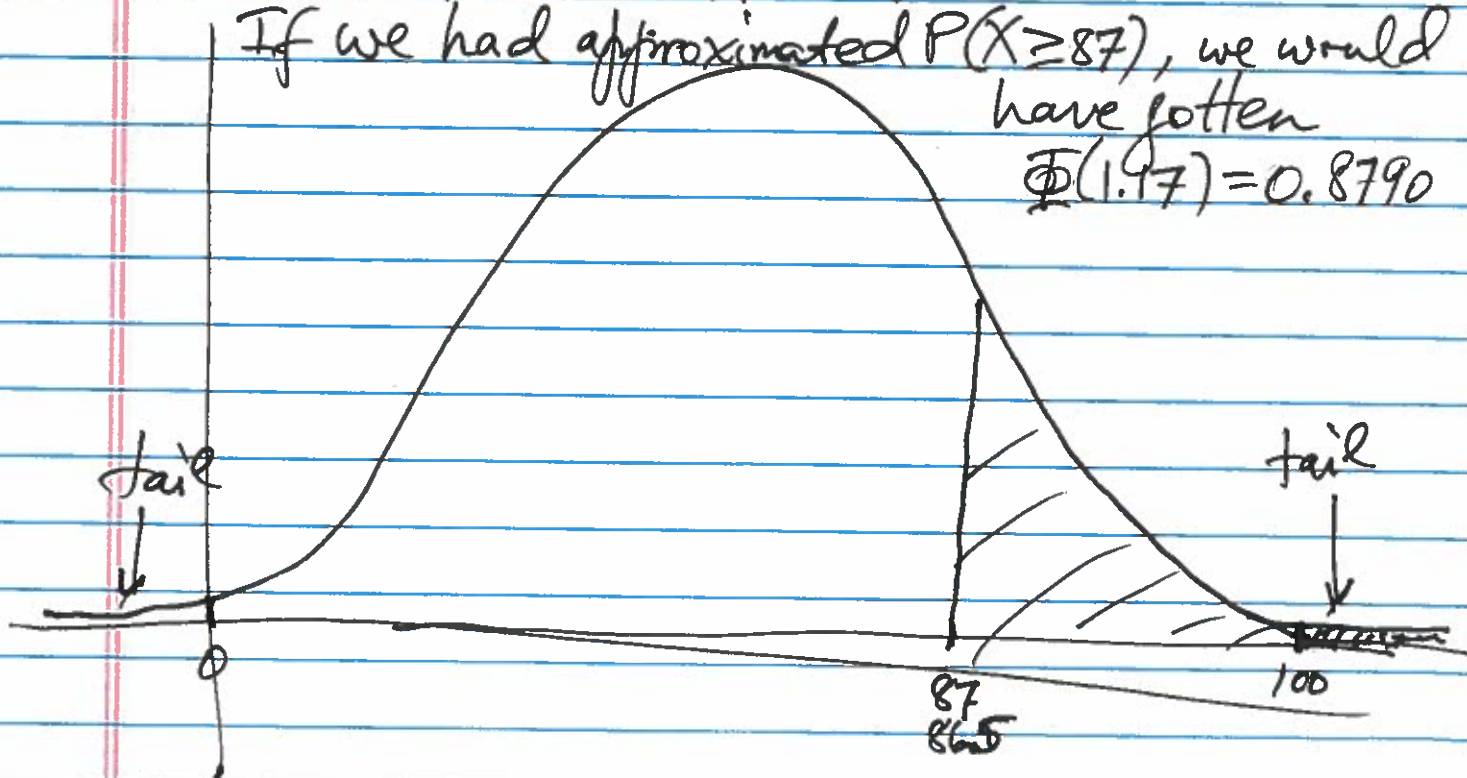 If we had approximated P(X≥87), we would
have gotten
Φ(1.17)=0.8790
tail
tail
0
87
100
86.5